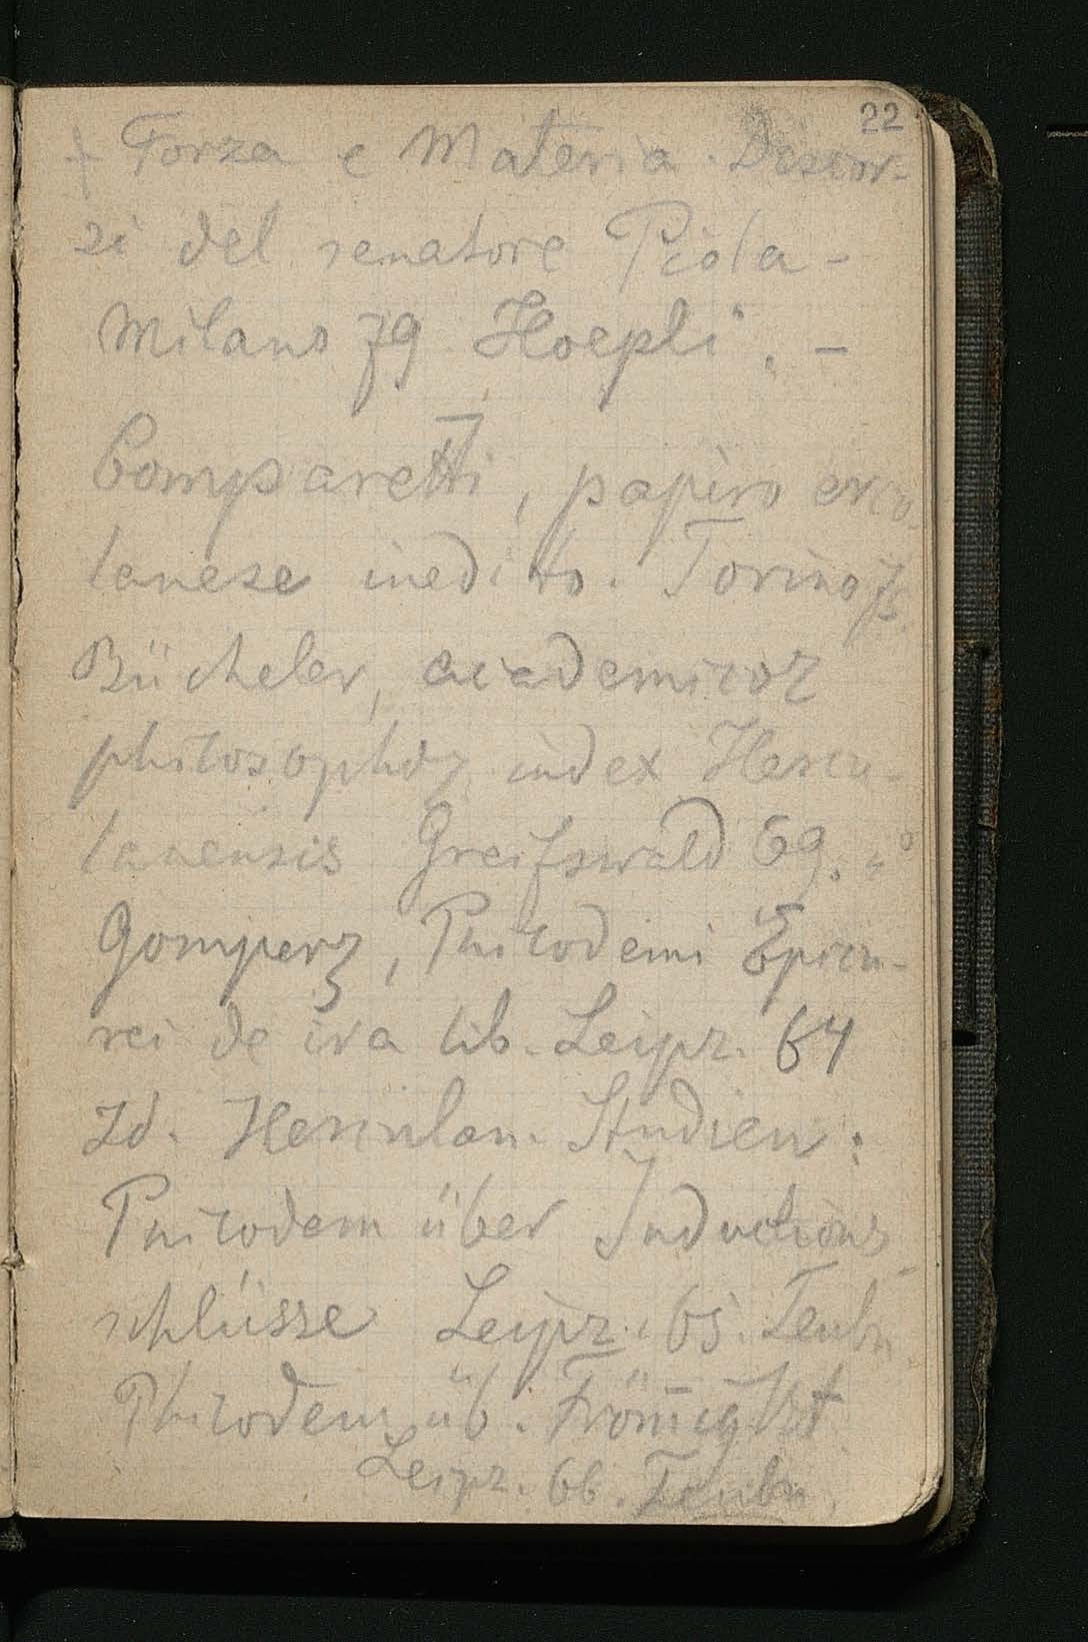 22
+ Forza e Materia. Discor-
si del senatore Piola -
Milano 79 Hoepli. -
Comparetti, papiro erco-
lanese inedito. Torino 75.
Bücheler, academicoꝝ
philosophoꝝ index Hercu-
lanensis Greifswald 69. 4°
Gomperz, Philodemi Epicu-
rei de ira lib. Leipz. 64
Id. Herculan. Studien:
Philodem über Inductions-
schlüsse Leipz. 65. Teubn.
Philodem üb. Fröm̄igkt
Leipz. 66. Teubn.